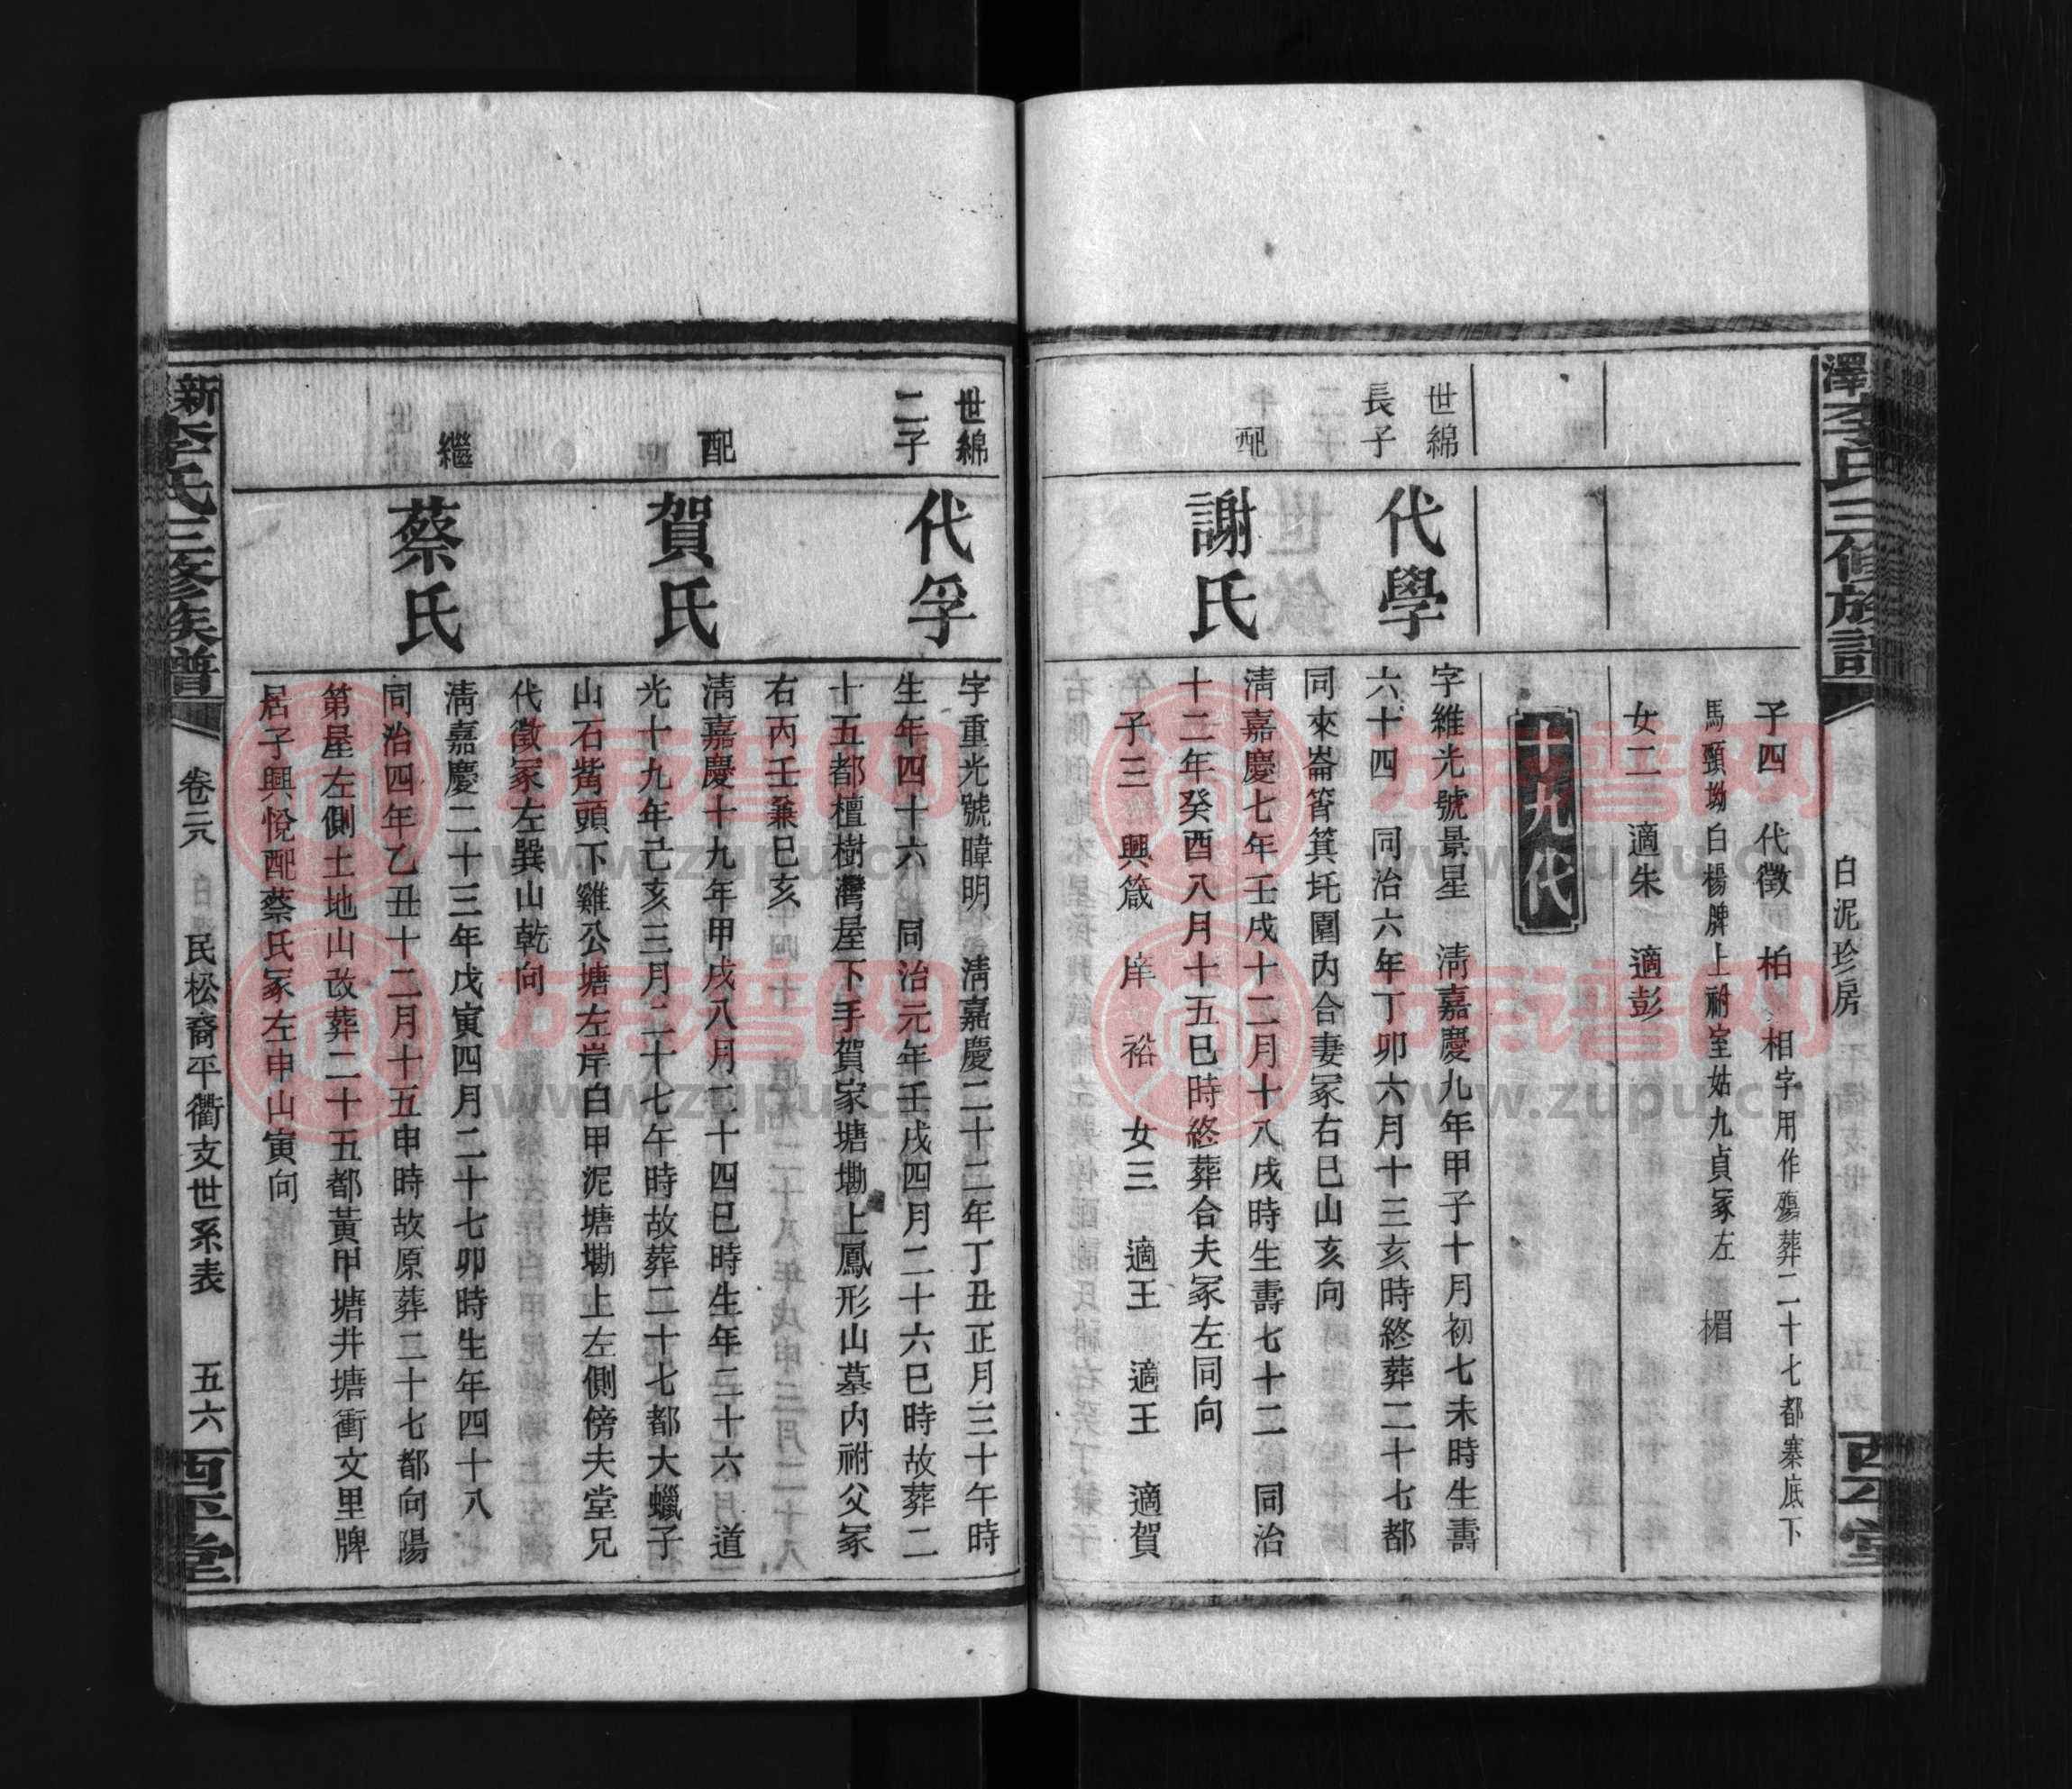 澤李氏三修族譜
白泥珍房
西平堂
子四 代徵 柏 相字用作殤葬二十七都寨底下
馬頸坳白楊脾上祔室姑九貞冢左 楣
女二 適朱 適彭
十九代
世綿
長子
代學
字維光號景星 清嘉慶九年甲子十月初七未時生壽
六十四 同治六年丁卯六月十三亥時終葬二十七都
同來崙筲箕圫圍內合妻冢右巳山亥向
配
謝氏
清嘉慶七年壬戌十二月十八戌時生壽七十二 同治
十二年癸酉八月十五巳時終葬合夫冢左同向
子三 興箴 庠 裕 女三 適王 適王 適賀
世綿
二子
代孚
字重光號暐明 清嘉慶二十二年丁丑正月三十午時
生年四十六 同治元年壬戌四月二十六巳時故葬二
十五都檀樹灣屋下手賀家塘墈上鳳形山墓內祔父冢
右丙壬兼巳亥
配
賀氏
清嘉慶十九年甲戌八月二十四巳時生年二十六 道
光十九年己亥三月二十七午時故葬二十七都大蠟子
山石觜頭下雞公塘左岸白甲泥塘墈上左側傍夫堂兄
代徵冢左巽山乾向
繼
蔡氏
清嘉慶二十三年戊寅四月二十七卯時生年四十八
同治四年乙丑十二月十五申時故原葬二十七都向陽
第屋左側土地山改葬二十五都黃甲塘井塘衝文里牌
居子興悅配蔡氏冢左申山寅向
新李氏三修族譜
卷二八
民松裔平衢支世系表
五六
西平堂
族譜网
www.zupu.cn
族譜网
www.zupu.cn
族譜网
www.zupu.cn
族譜网
www.zupu.cn